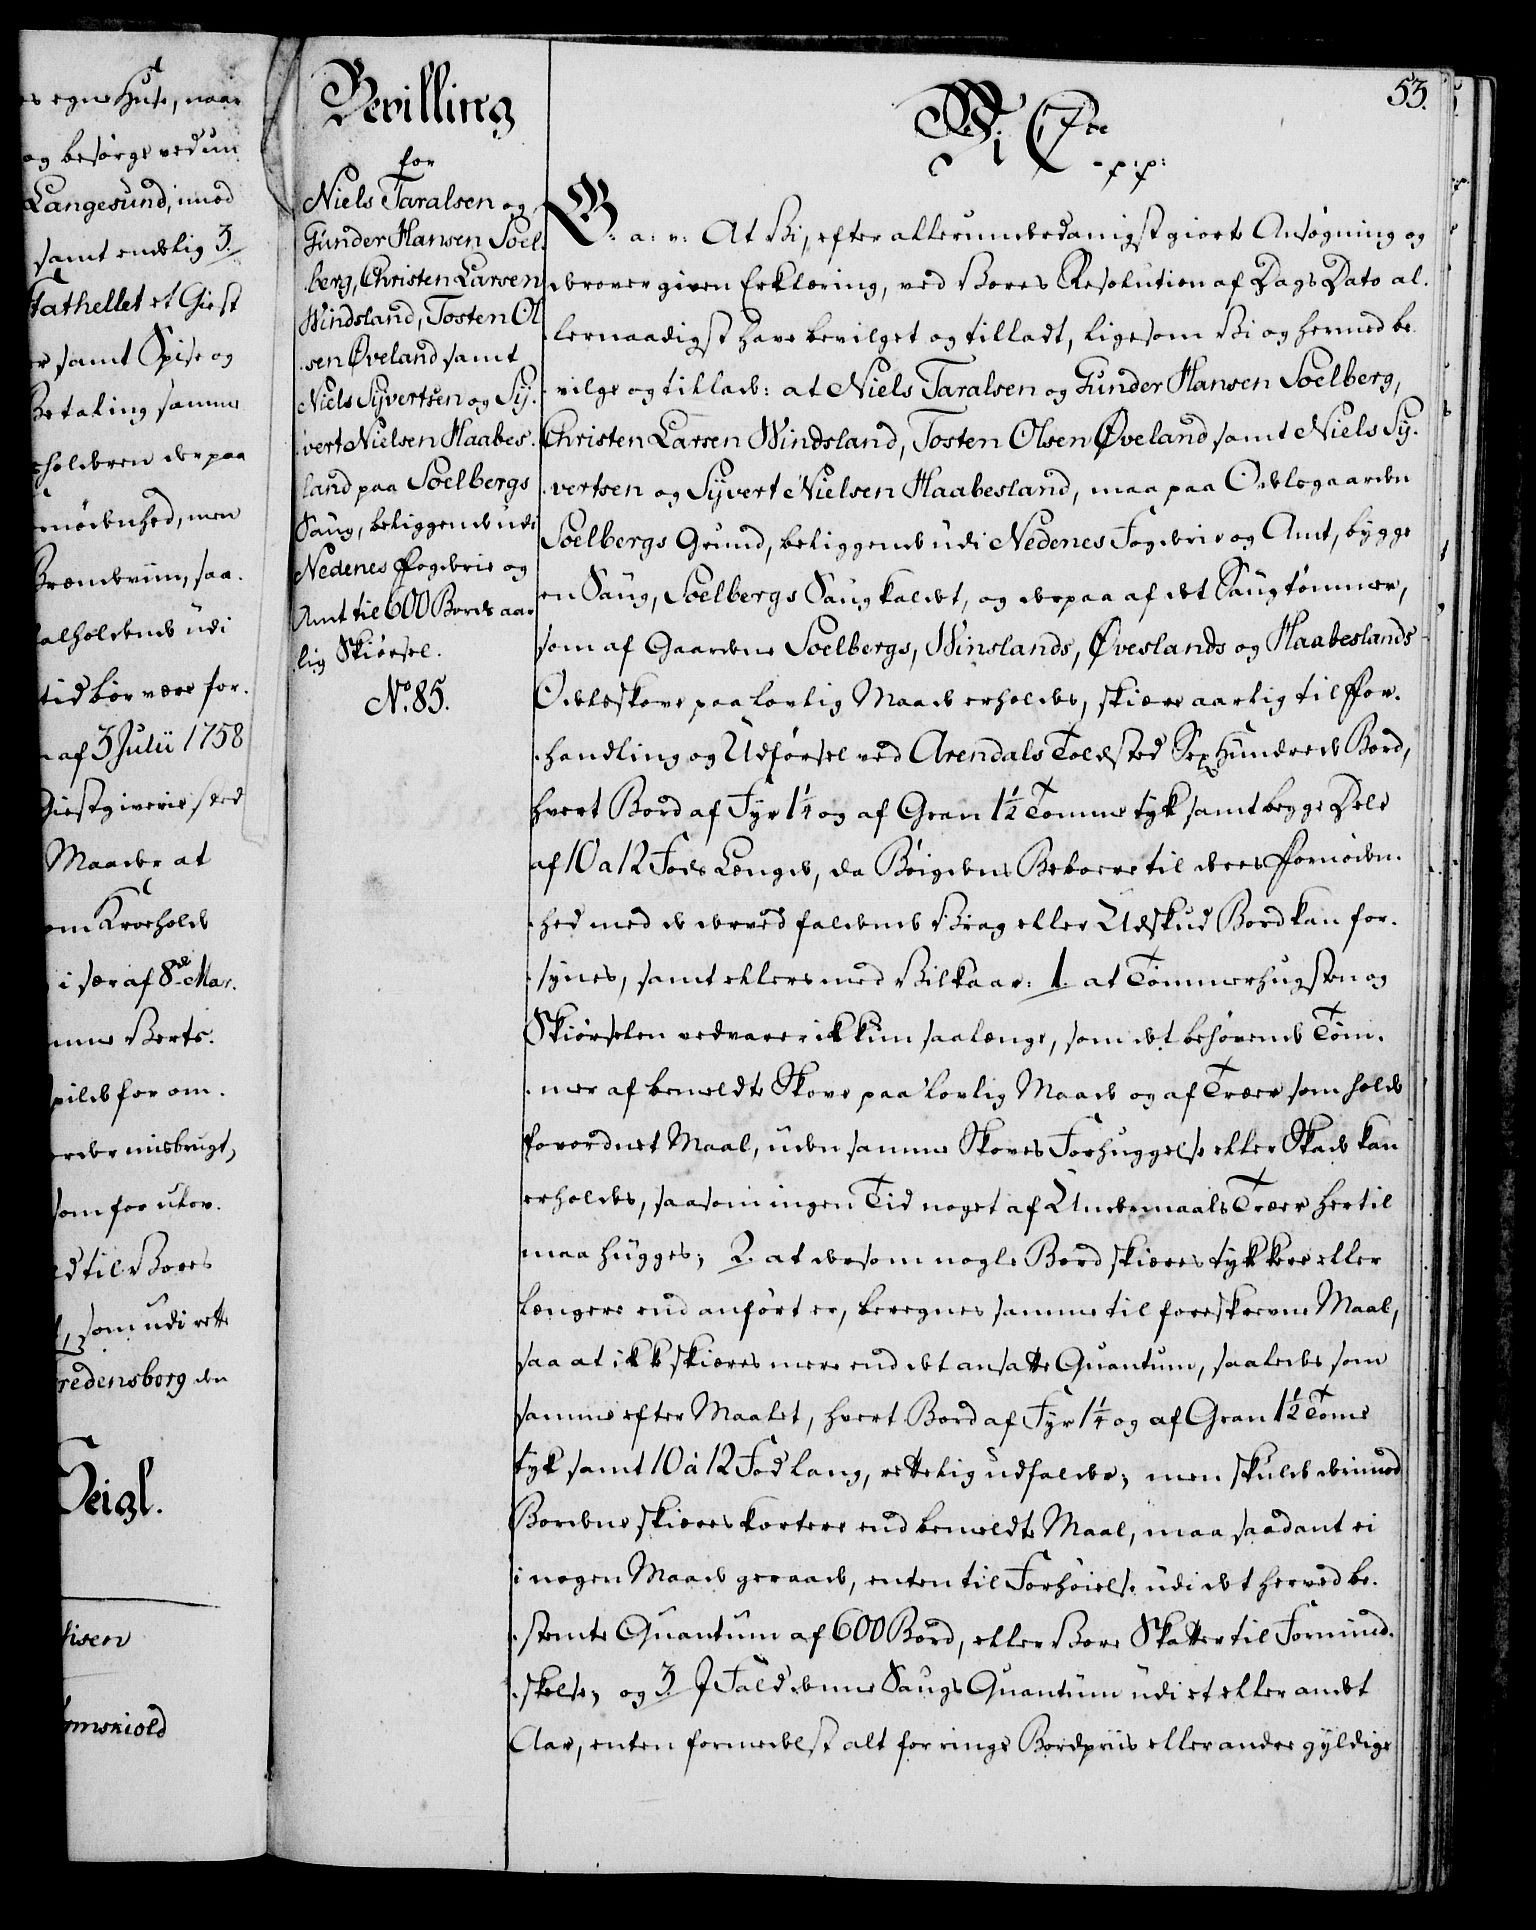 es egne Huse, naar
og besørge ved un
Langesund, imod
samt endelig 3.
Stathellet et Giest
er samt Spise og
Betaling samme
eholderen derpaa
ornødenhed, men
Brændeviin, saa-
alholdende udi
tid bør være for-
af 3 Julii 1758
Giestgiverie sted
Maader at
om Kroehold
i sær af 8de Mar-
nme Berts-
pilde for om-
order misbrugt,
som for uden-
ed til Vores
som udi rette
Fredensborg den
Seigl.
tisen
ømskiold
Bevilling
for
Niels Taralsen og
Gunder Hansen Soel-
berg, Christen Larsen
Windsland, Tosten Ol
sen Øveland samt
Niels Syvertsen og Sy-
vert Nielsen Haabes-
land paa Soelbergs
Saug, beliggende udi
Nedenes Fogderie og
Amt til 600 Bords aar
lig Skiørsel.
No. 85.
53.
Wi C 7de
p: p:
G: a: v: At Vi, efter allerunderdanigst giorte Ansøgning og
derover given Erklæring, ved Vores Resolution af Dags Dato al-
lernaadigst have bevilget og tilladt, ligesom Vi og hermed be-
vilge og tillade: at Niels Taralsen og Gunder Hansen Soelberg,
Christen Larsen Windsland, Tosten Olsen Øveland samt Niels Sy-
vertsen og Syvert Nielsen Haabesland, maa paa Odelsgaarden
Soelbergs Grund, beliggende udi Nedenes Fogderie og Amt, bygge
en Saug, Soelbergs Saug kaldet, og derpaa af det Saugtømmer,
som af Gaardene Soelbergs, Winslands, Øveslands og Haabeslands
Odelsskove paa lovlig Maade erholdes, skiære aarlig til For-
handling og Udførsel ved Arendals Toldsted Sex Hundrede Bord,
hvert Bord af Fyr 1¼ og af Gran 1½ Tomme tyk samt begge Dele
af 10 a 12 Fods Længde, da Bøigdens Beboere til deres Fornøden-
hed med de derved faldende Vrag eller Udskud Bord kan for-
synes, samt ellers med Vilkaar: 1. at Tømmerhugsten og
Skiørselen vedvarer ikkun saalænge, som det behøvende Tøm-
mer af bemeldte Skove paa lovlig Maade og af Træer som holde
forordnet Maal, uden samme Skoves Forhuggelse eller Skade kan
erholdes, saasom ingen Tid noget af Undermaals Træer hertil
maa hugges; 2. at dersom nogle Bord skiæres tykkere eller
længere end anført er, beregnes samme til foreskrevne Maal,
saa at ikke skiæres mere end det ansatte Quantum, saaledes som
samme efter Maalet, hvert Bord af Fyr 1¼ og af Gran 1½ Tome
tyk samt 10 à 12 Fod lang, rettelig udfalder; men skulde derimod
Bordene skiæres kortere end bemeldte Maal, maa saadant ei
i nogen Maade geraade, enten til Forhøielse udi det herved be-
stemte Quantum af 600 Bord, eller Vore Skatter til Formind-
skelse; og 3. I Fald denne Saugs Quantum udi et eller andet
Aar, enten formedelst alt for ringe Bordpriis eller andre gyldige